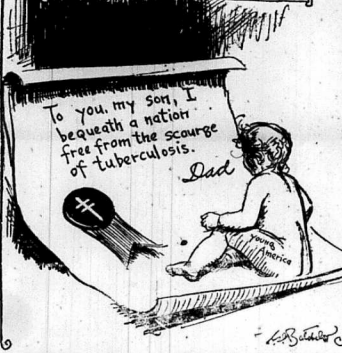 To you, my son, I
bequeath a nation
free from the scourge
of tuberculosis.
Dad
Young
America